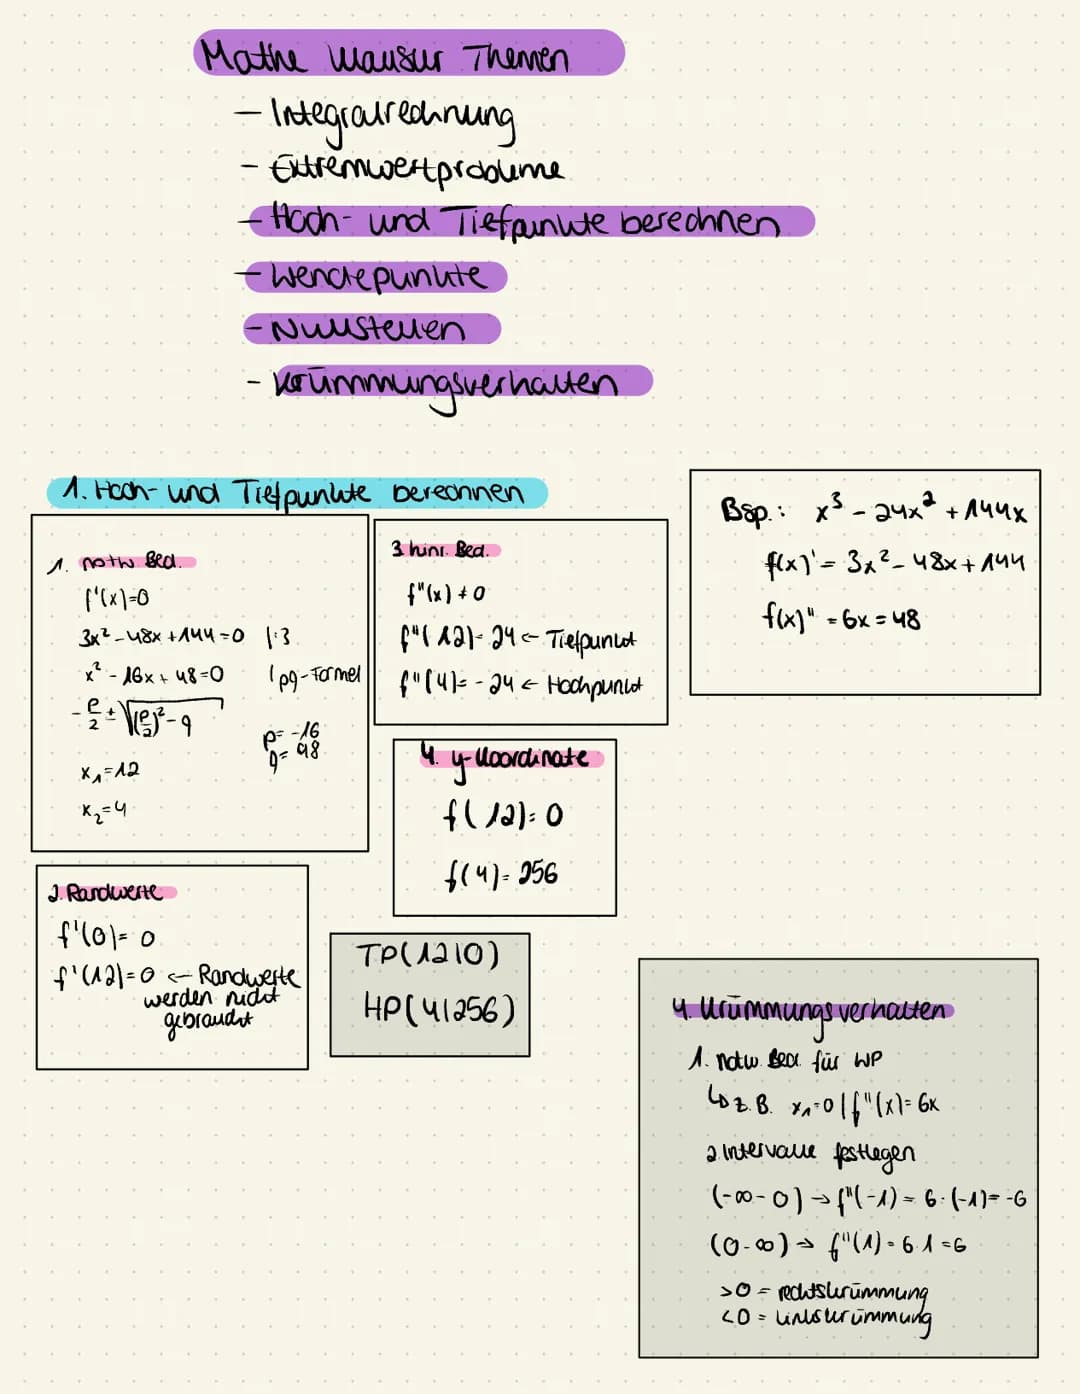 Mathe Klausur Themen
- Integralrechnung
- Extremwertprobleme
- Hoch- und Tiefpunkte berechnen
- Wendepunkte
- Nullstellen
- Krümmungsverhalten
1. Hoch- und Tiefpunkte berechnen
1. notw. Bed.
f'(x)=0
3x² - 48x + 144 = 0 |:3
x² - 16x + 48 = 0 | pq-Formel
-p/2 ± √((p/2)² - q)
p = -16
q = 48
x₁ = 12
x₂ = 4
2. Randwerte
f'(0) = 0
f'(12) = 0 ← Randwerte
werden nicht
gebraucht
3. hinr. Bed.
f"(x) ≠ 0
f"(12) = 24 ← Tiefpunkt
f"(4) = -24 ← Hochpunkt
4. y-Koordinate
f(12) = 0
f(4) = 256
TP(12|0)
HP(4|256)
Bsp.: x³ - 24x² + 144x
f(x)' = 3x² - 48x + 144
f(x)" = 6x = 48
4. Krümmungsverhalten
1. notw. Bed. für WP
↳ z.B. x₁=0 | f"(x) = 6x
2. Intervalle festlegen
(-∞ - 0) → f"(-1) = 6·(-1) = -6
(0 - ∞) → f"(1) = 6·1 = 6
>0 = rechtskrümmung
<0 = linkskrümmung